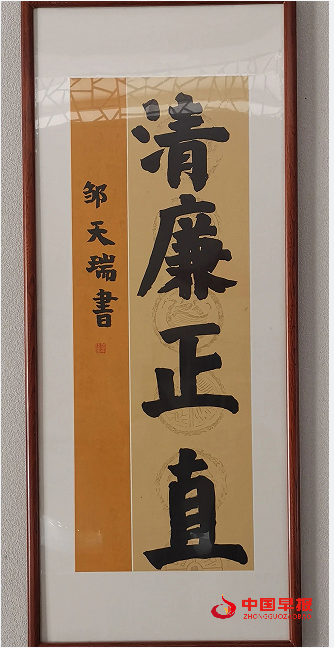 清廉正直
邹天瑞書
中国早报